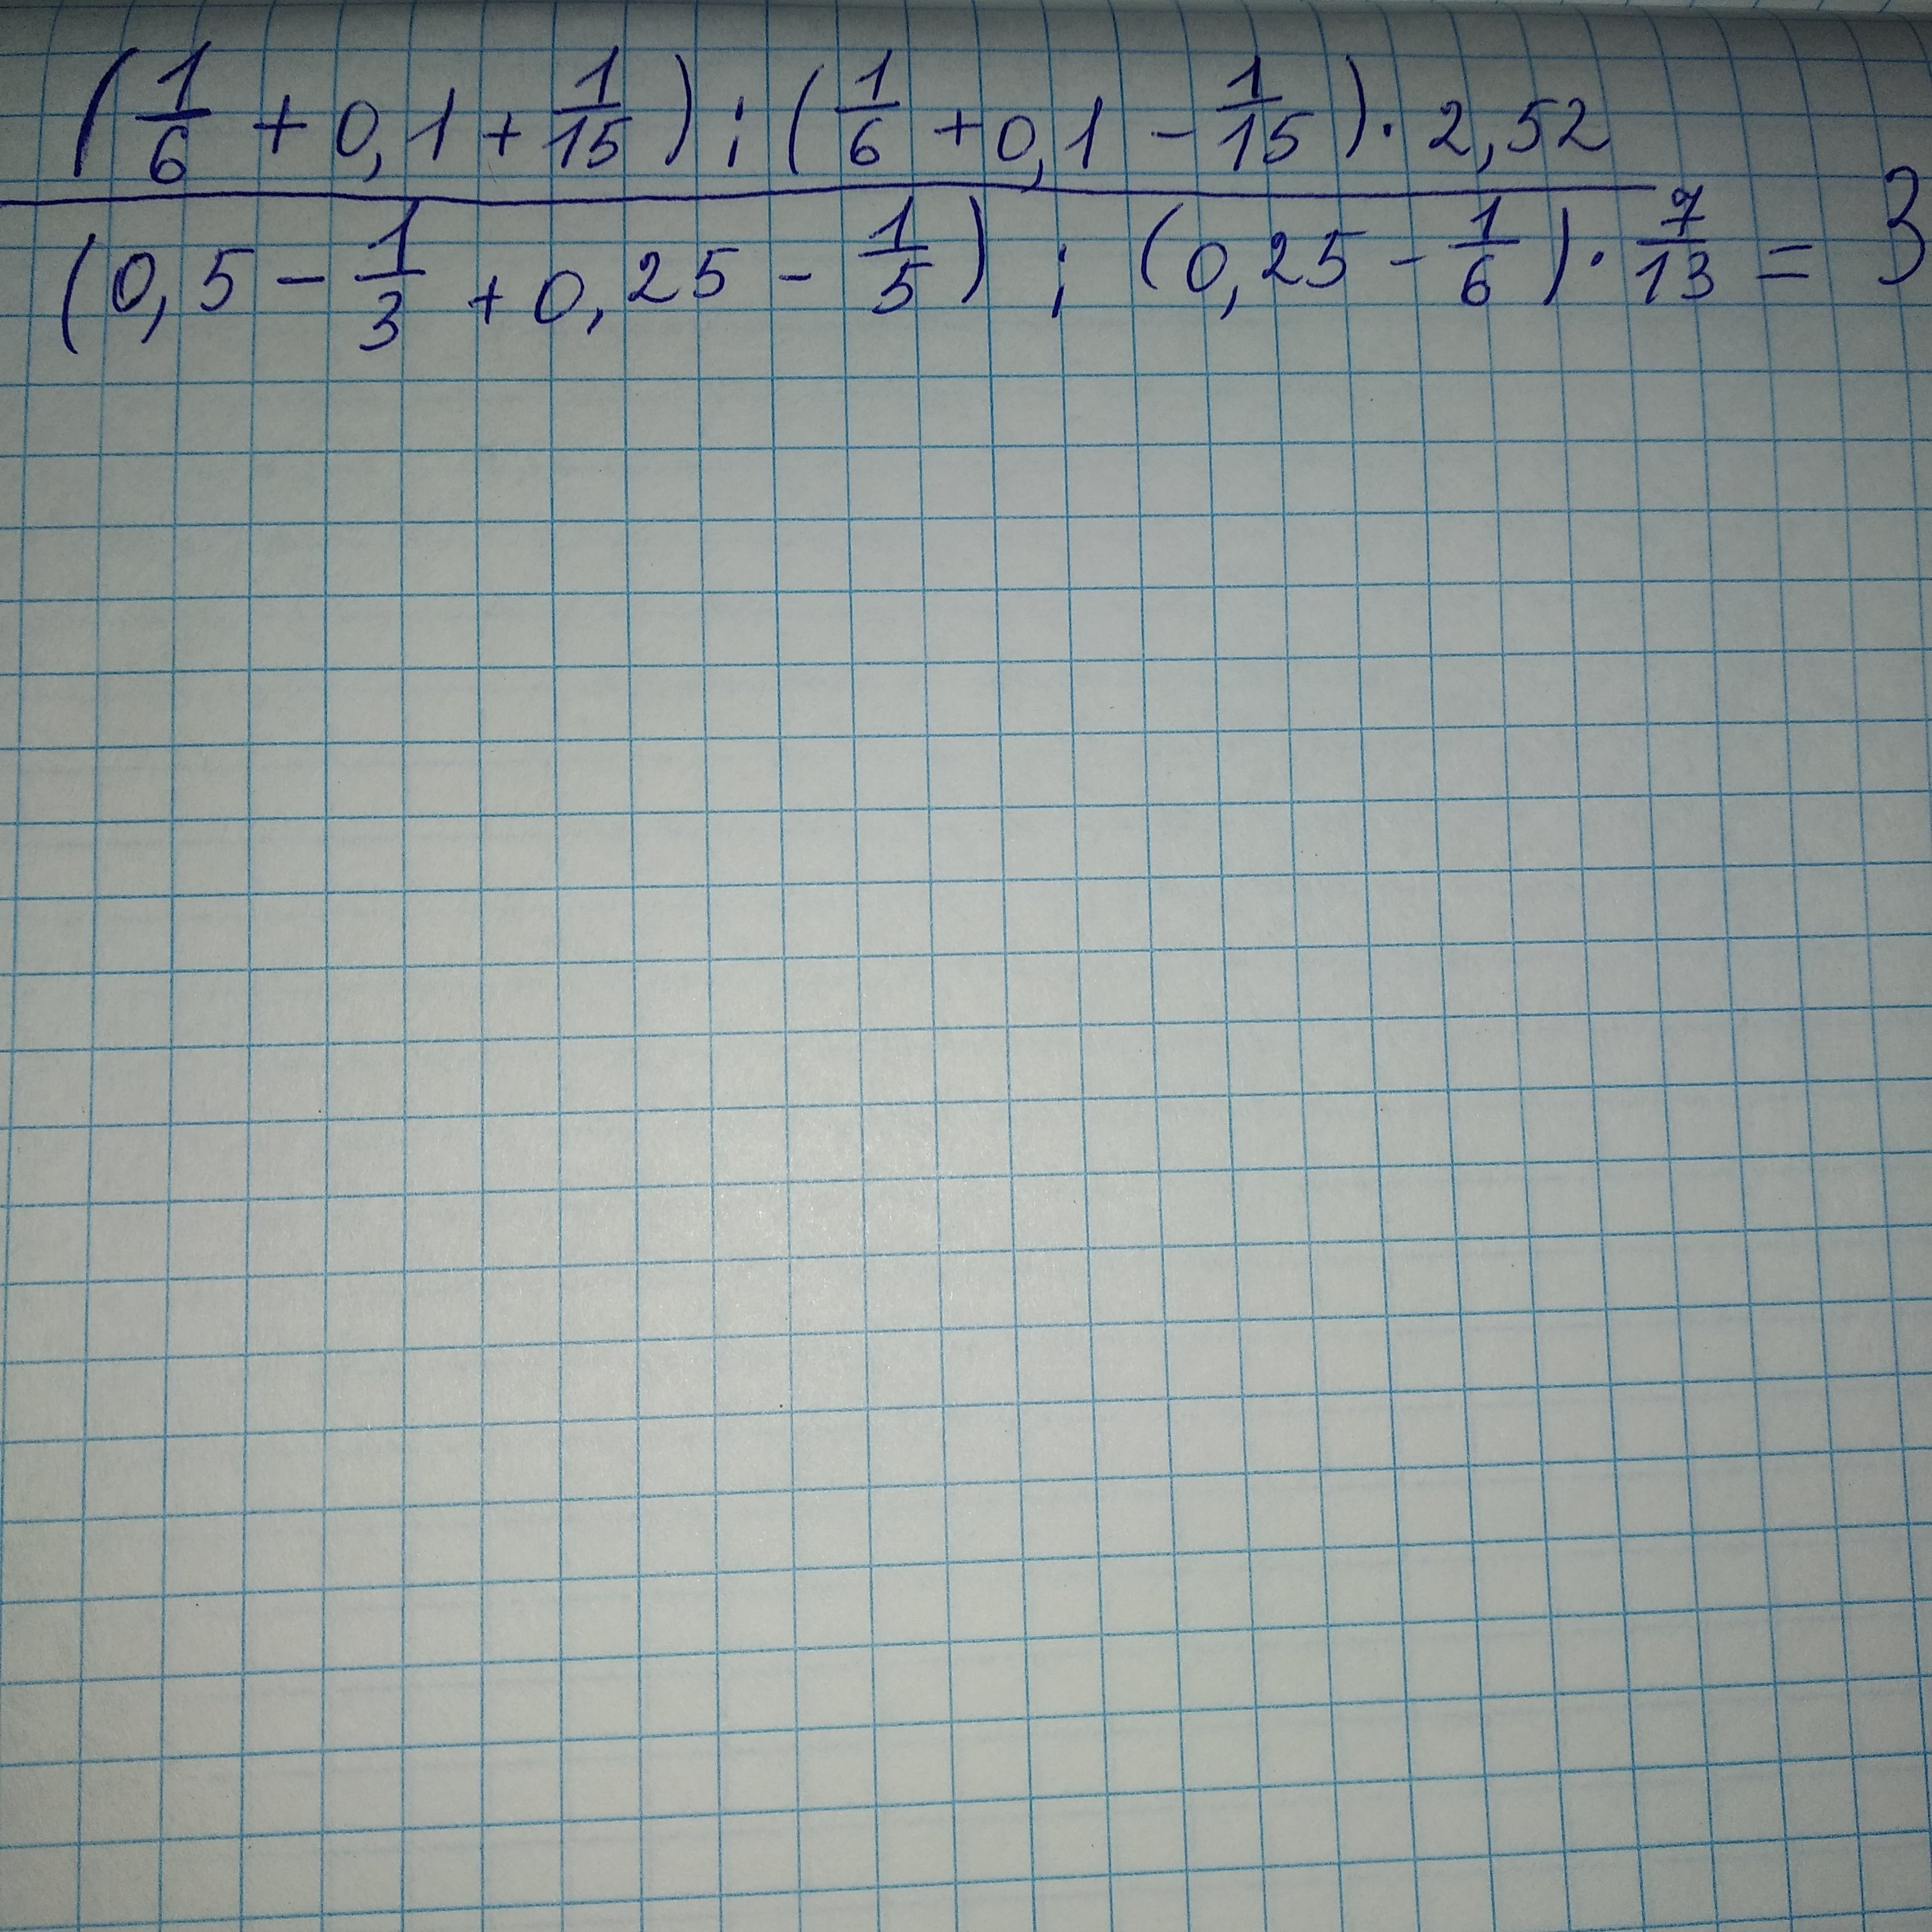 (1/6 + 0,1 + 1/15) : (1/6 + 0,1 - 1/15) · 2,52
(0,5 - 1/3 + 0,25 - 1/5) : (0,25 - 1/6) · 7/13 = 3